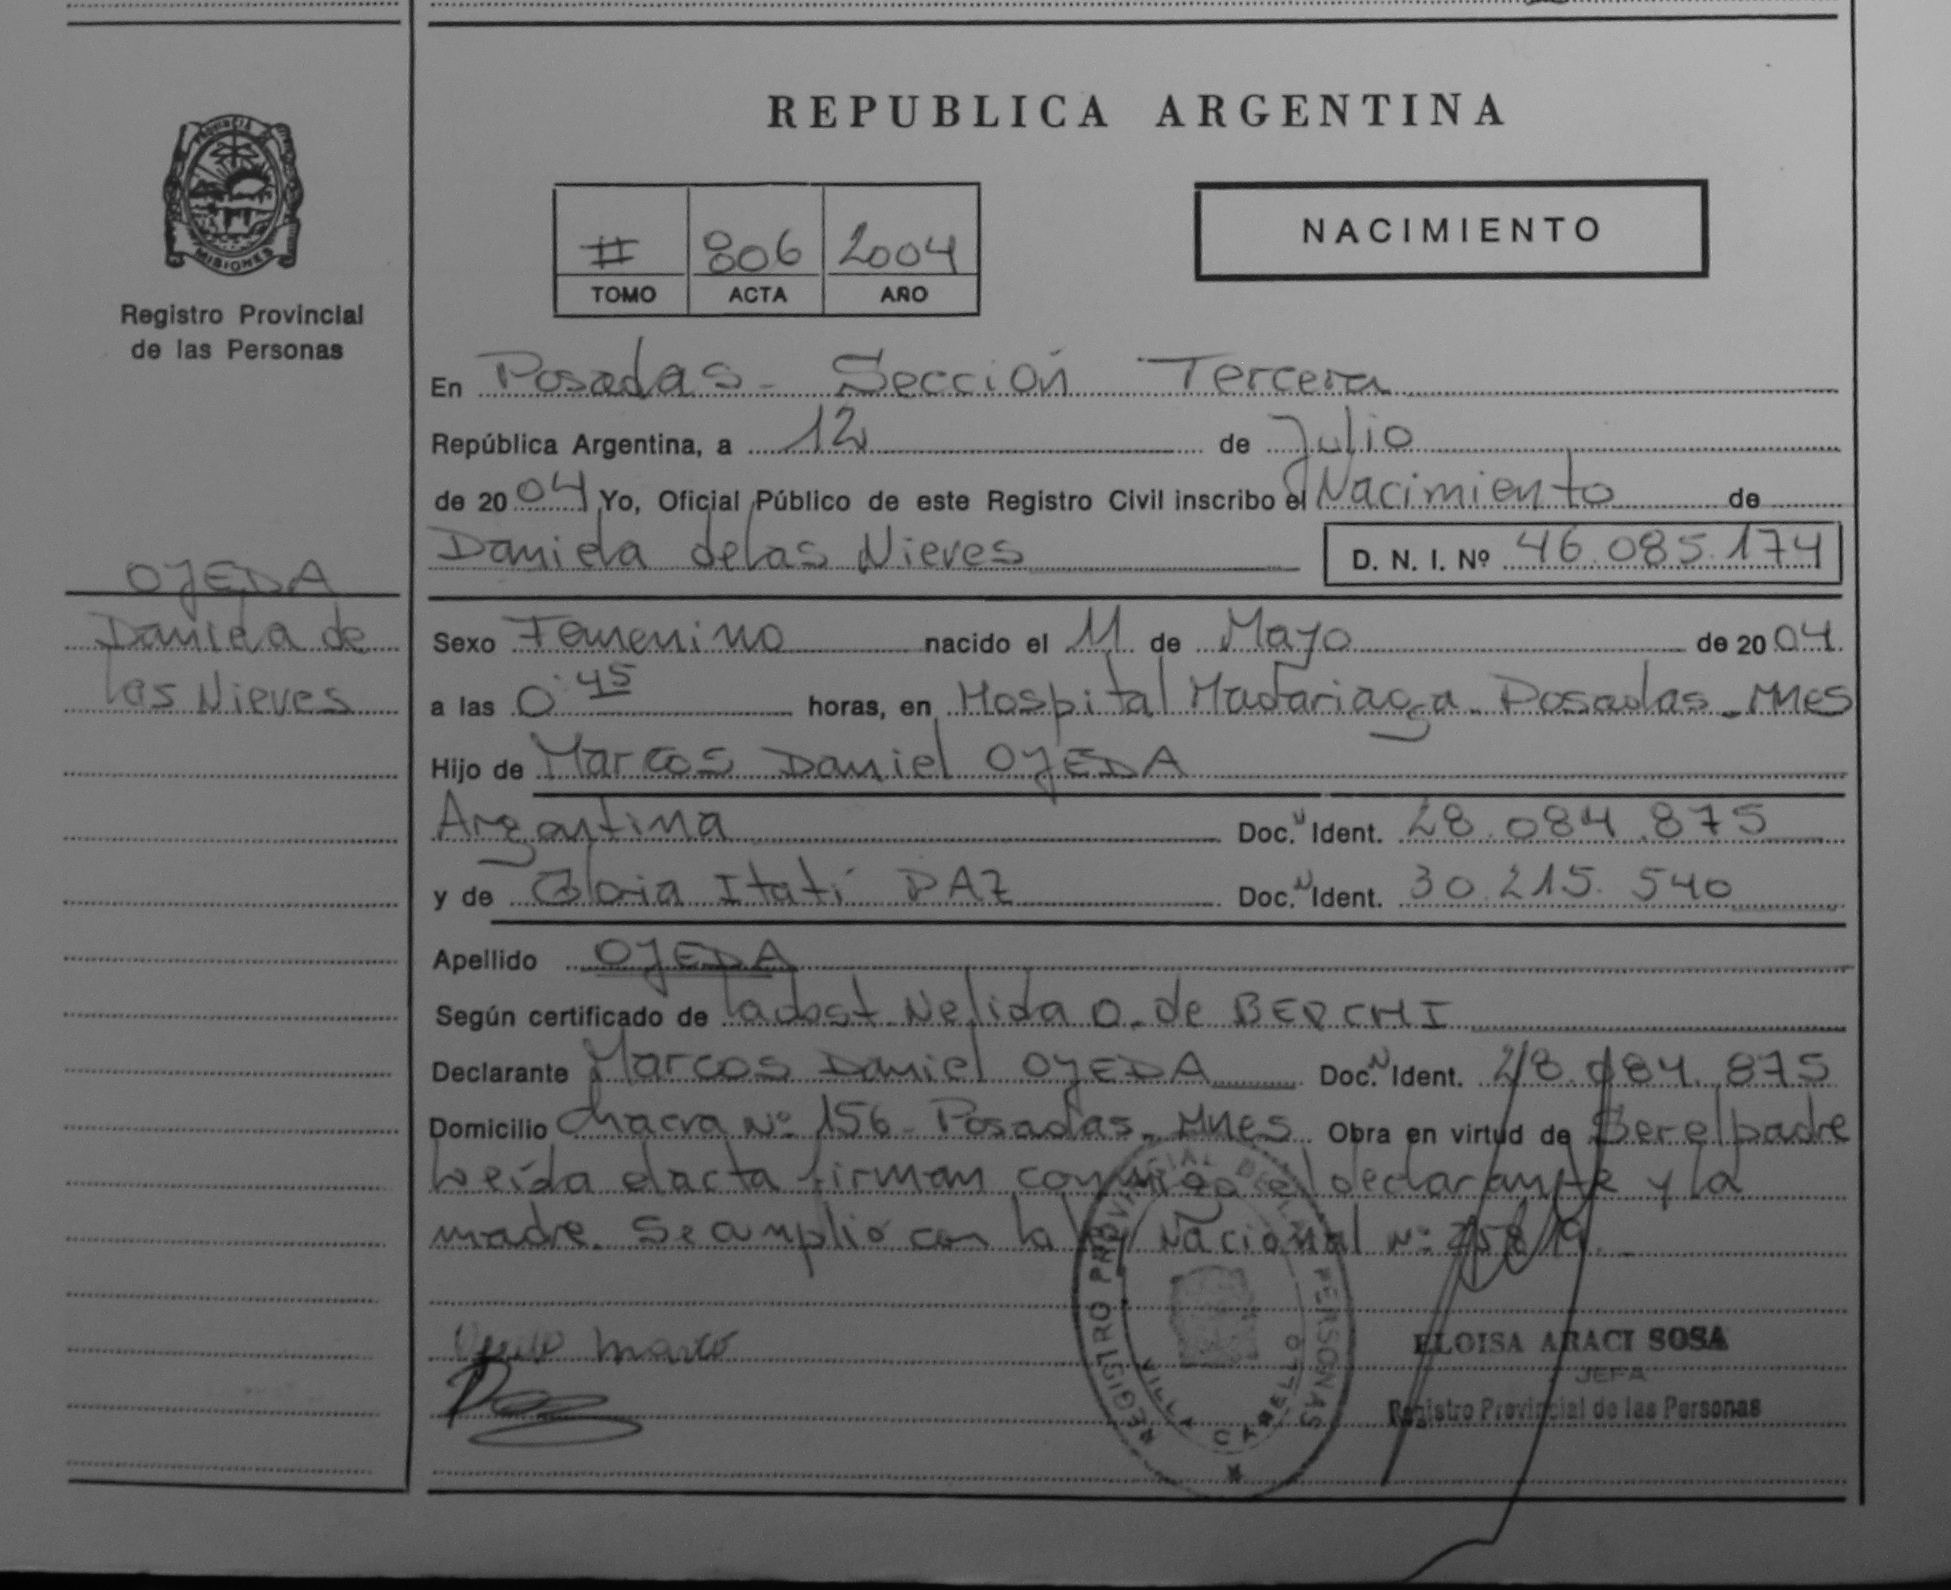 REPUBLICA ARGENTINA
PROVINCIA DE MISIONES
Registro Provincial
de las Personas
# 806 2004
TOMO ACTA AÑO
NACIMIENTO
En Posadas - Sección Tercera
República Argentina, a 12 de Julio
de 2004 Yo, Oficial Público de este Registro Civil inscribo el Nacimiento de
Daniela de las Nieves D. N. I. Nº 46.085.174
OJEDA
Daniela de
las Nieves
Sexo Femenino nacido el 11 de Mayo de 2004
a las 0:45 horas, en Hospital Madariaga - Posadas - Mnes
Hijo de Marcos Daniel OJEDA
Argentina Doc. N Ident. 28.084.875
y de Gloria Itatí PAZ Doc. N Ident. 30.215.540
Apellido OJEDA
Según certificado de la obst. Nelida O. de BERCHI
Declarante Marcos Daniel OJEDA Doc. N Ident. 28.084.875
Domicilio Chacra Nº 156 - Posadas - Mnes Obra en virtud de Ser el padre
Leída el acta firman conmigo el declarante y la
madre. Se amplió con la ley Nacional nº
REGISTRO PROVINCIAL DE LAS PERSONAS
VILLA CABELLO
ELOISA ARACI SOSA
JEFA
Registro Provincial de las Personas